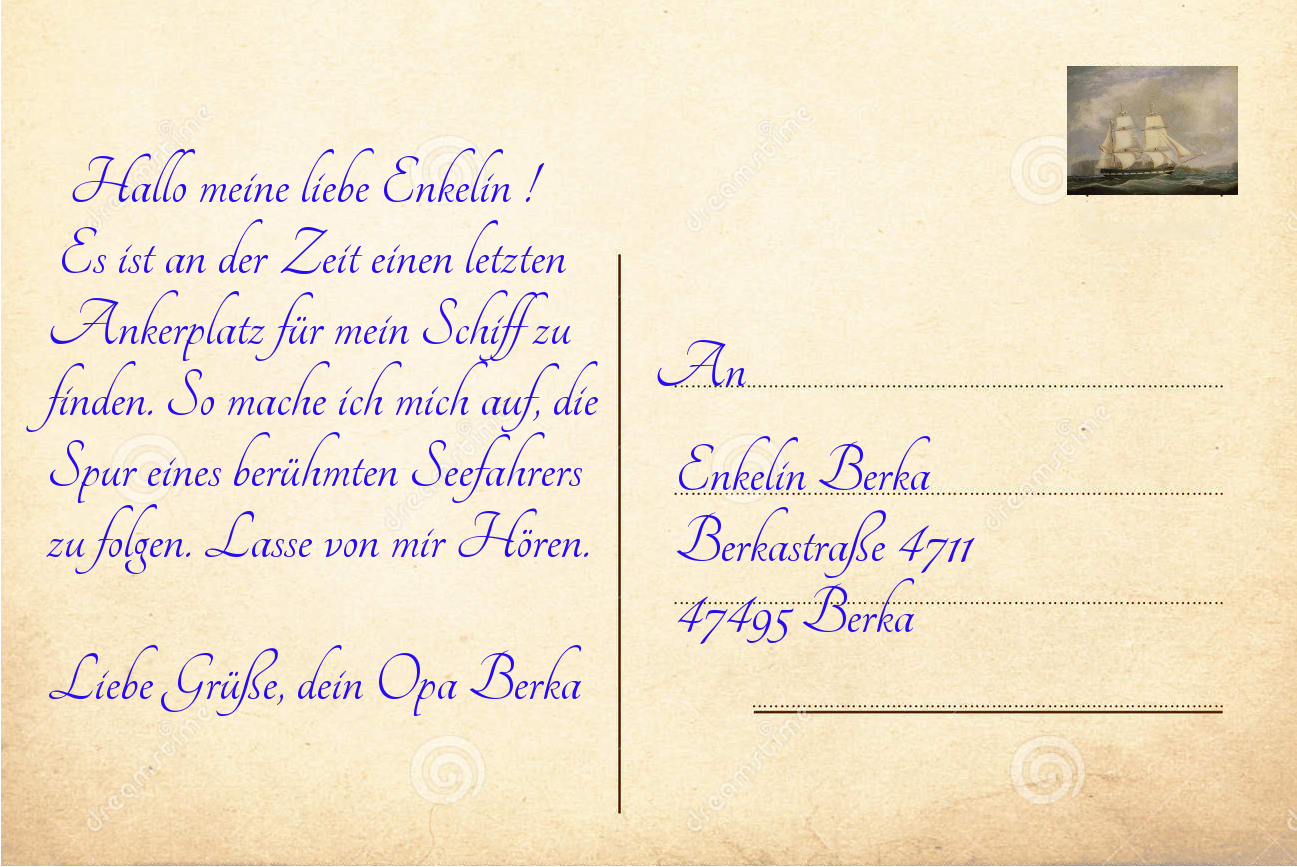 Hallo meine liebe Enkelin !
Es ist an der Zeit einen letzten
Ankerplatz für mein Schiff zu
finden. So mache ich mich auf, die
Spur eines berühmten Seefahrers
zu folgen. Lasse von mir Hören.
Liebe Grüße, dein Opa Berka
An
Enkelin Berka
Berkastraße 4711
47495 Berka
dreamstime
dreamstime
dreamstime
dreamstime
dreamstime
dreamstime